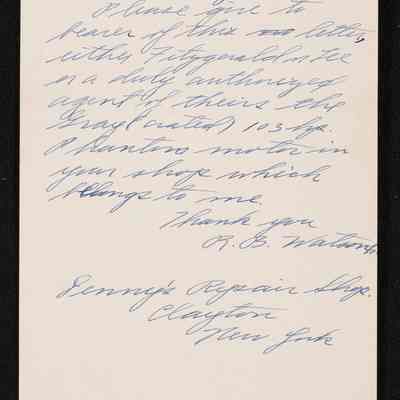 Please give to
bearer of this letter,
either Fitzgerald n Lee
or a duly authorized
agent of theirs the
Gray (crated) 103 hp.
Phantom motor in
your shop which
belongs to me.
Thank you
R. B. Watson
Denny's Repair Shop.
Clayton
New York